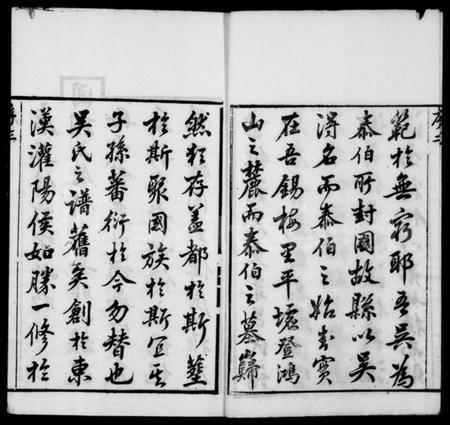 範於無窮耶吾吳為
泰伯所封國故縣以吳
得名而泰伯之始封實
在吾錫梅里平墟登鴻
山之麓而泰伯之墓巋
然猶存蓋都於斯葬
於斯聚國族於斯宜其
子孫蕃衍於今勿替也
吳氏之譜舊矣創於東
漢灌陽侯如勝一修於
序三